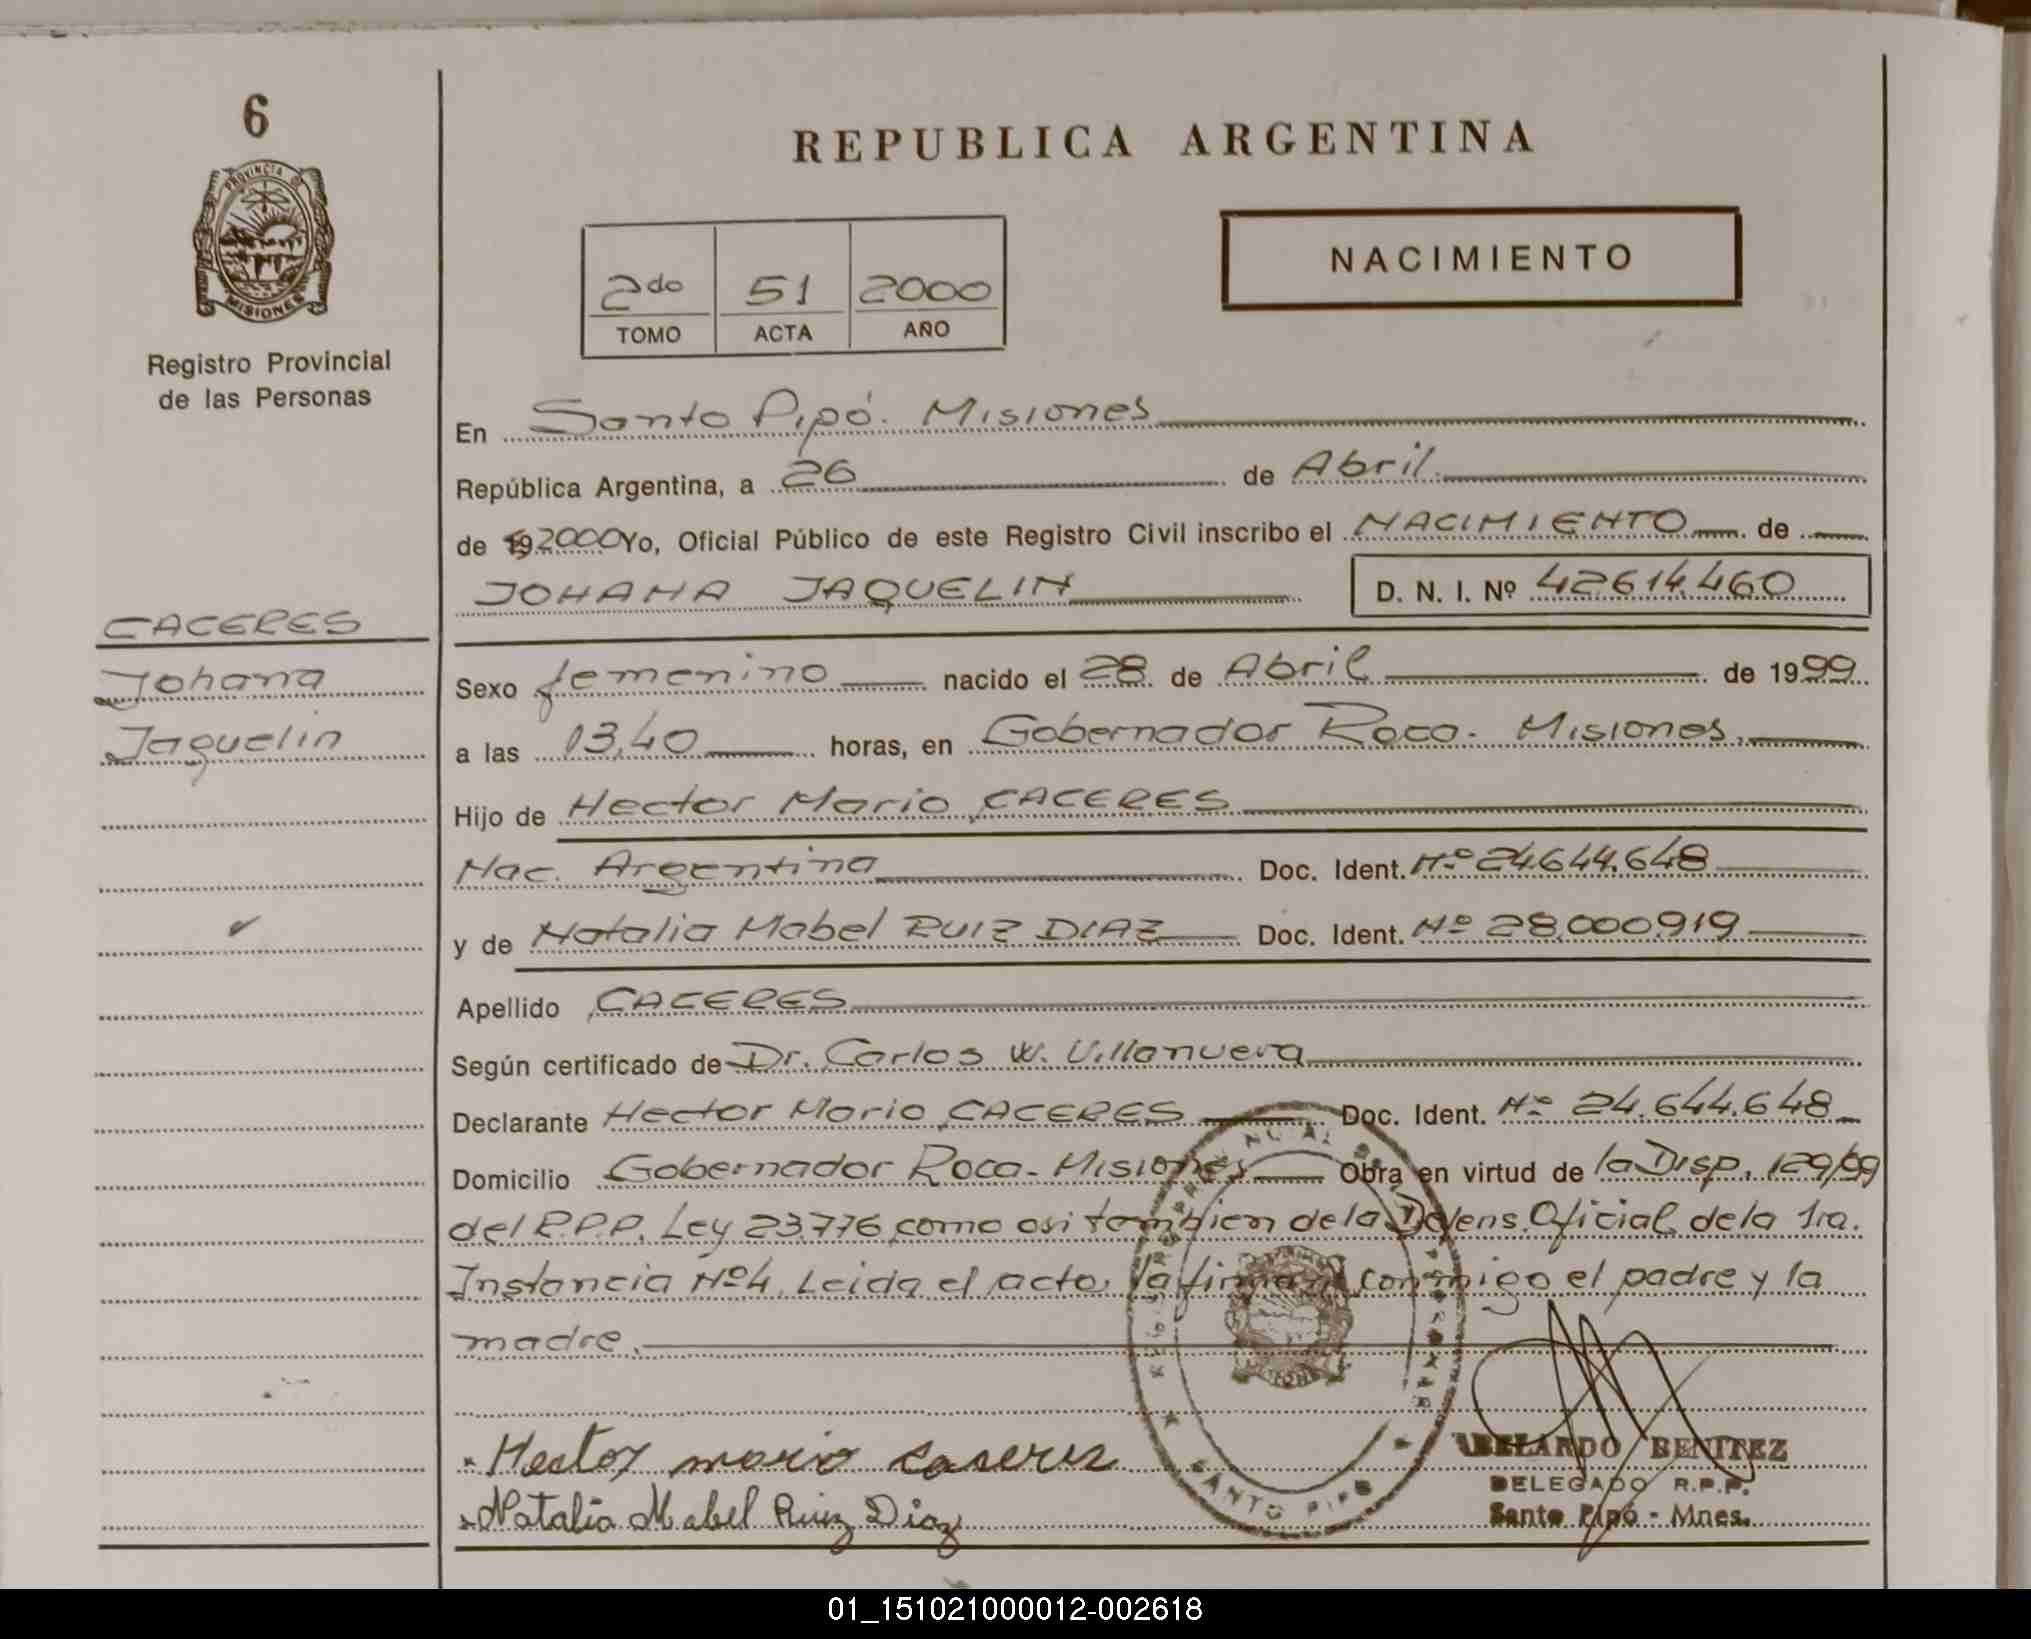 6
PROVINCIA DE
MISIONES
Registro Provincial
de las Personas
REPUBLICA ARGENTINA
2do 51 2000
TOMO ACTA AÑO
NACIMIENTO
En Santo Pipó. Misiones
República Argentina, a 26 de Abril.
de 19 2000 Yo, Oficial Público de este Registro Civil inscribo el NACIMIENTO de
JOHANA JAQUELIN D. N. I. Nº 42.614.460
CACERES
Johana
Jaquelin
Sexo femenino nacido el 28 de Abril de 1999
a las 13,40 horas, en Gobernador Roca. Misiones.
Hijo de Hector Mario CACERES
Nac. Argentina Doc. Ident. Nº 24.644.648
y de Natalia Mabel RUIZ DIAZ Doc. Ident. Nº 28.000.919
Apellido CACERES
Según certificado de Dr. Carlos W. Villanueva
Declarante Hector Mario CACERES Doc. Ident. Nº 24.644.648
Domicilio Gobernador Roca. Misiones Obra en virtud de la Disp. 129/99
del R.P.P. Ley 23.776, como asi tambien de la Defens. Oficial de la 1ra.
Instancia Nº 4. Leida el acta, la firman conmigo el padre y la
madre.
Hector mario caseres
Natalia Mabel Ruiz Diaz
SANTO PIPO
ABELARDO BENITEZ
DELEGADO R.P.P.
Santo Pipó - Mnes.
01_151021000012-002618